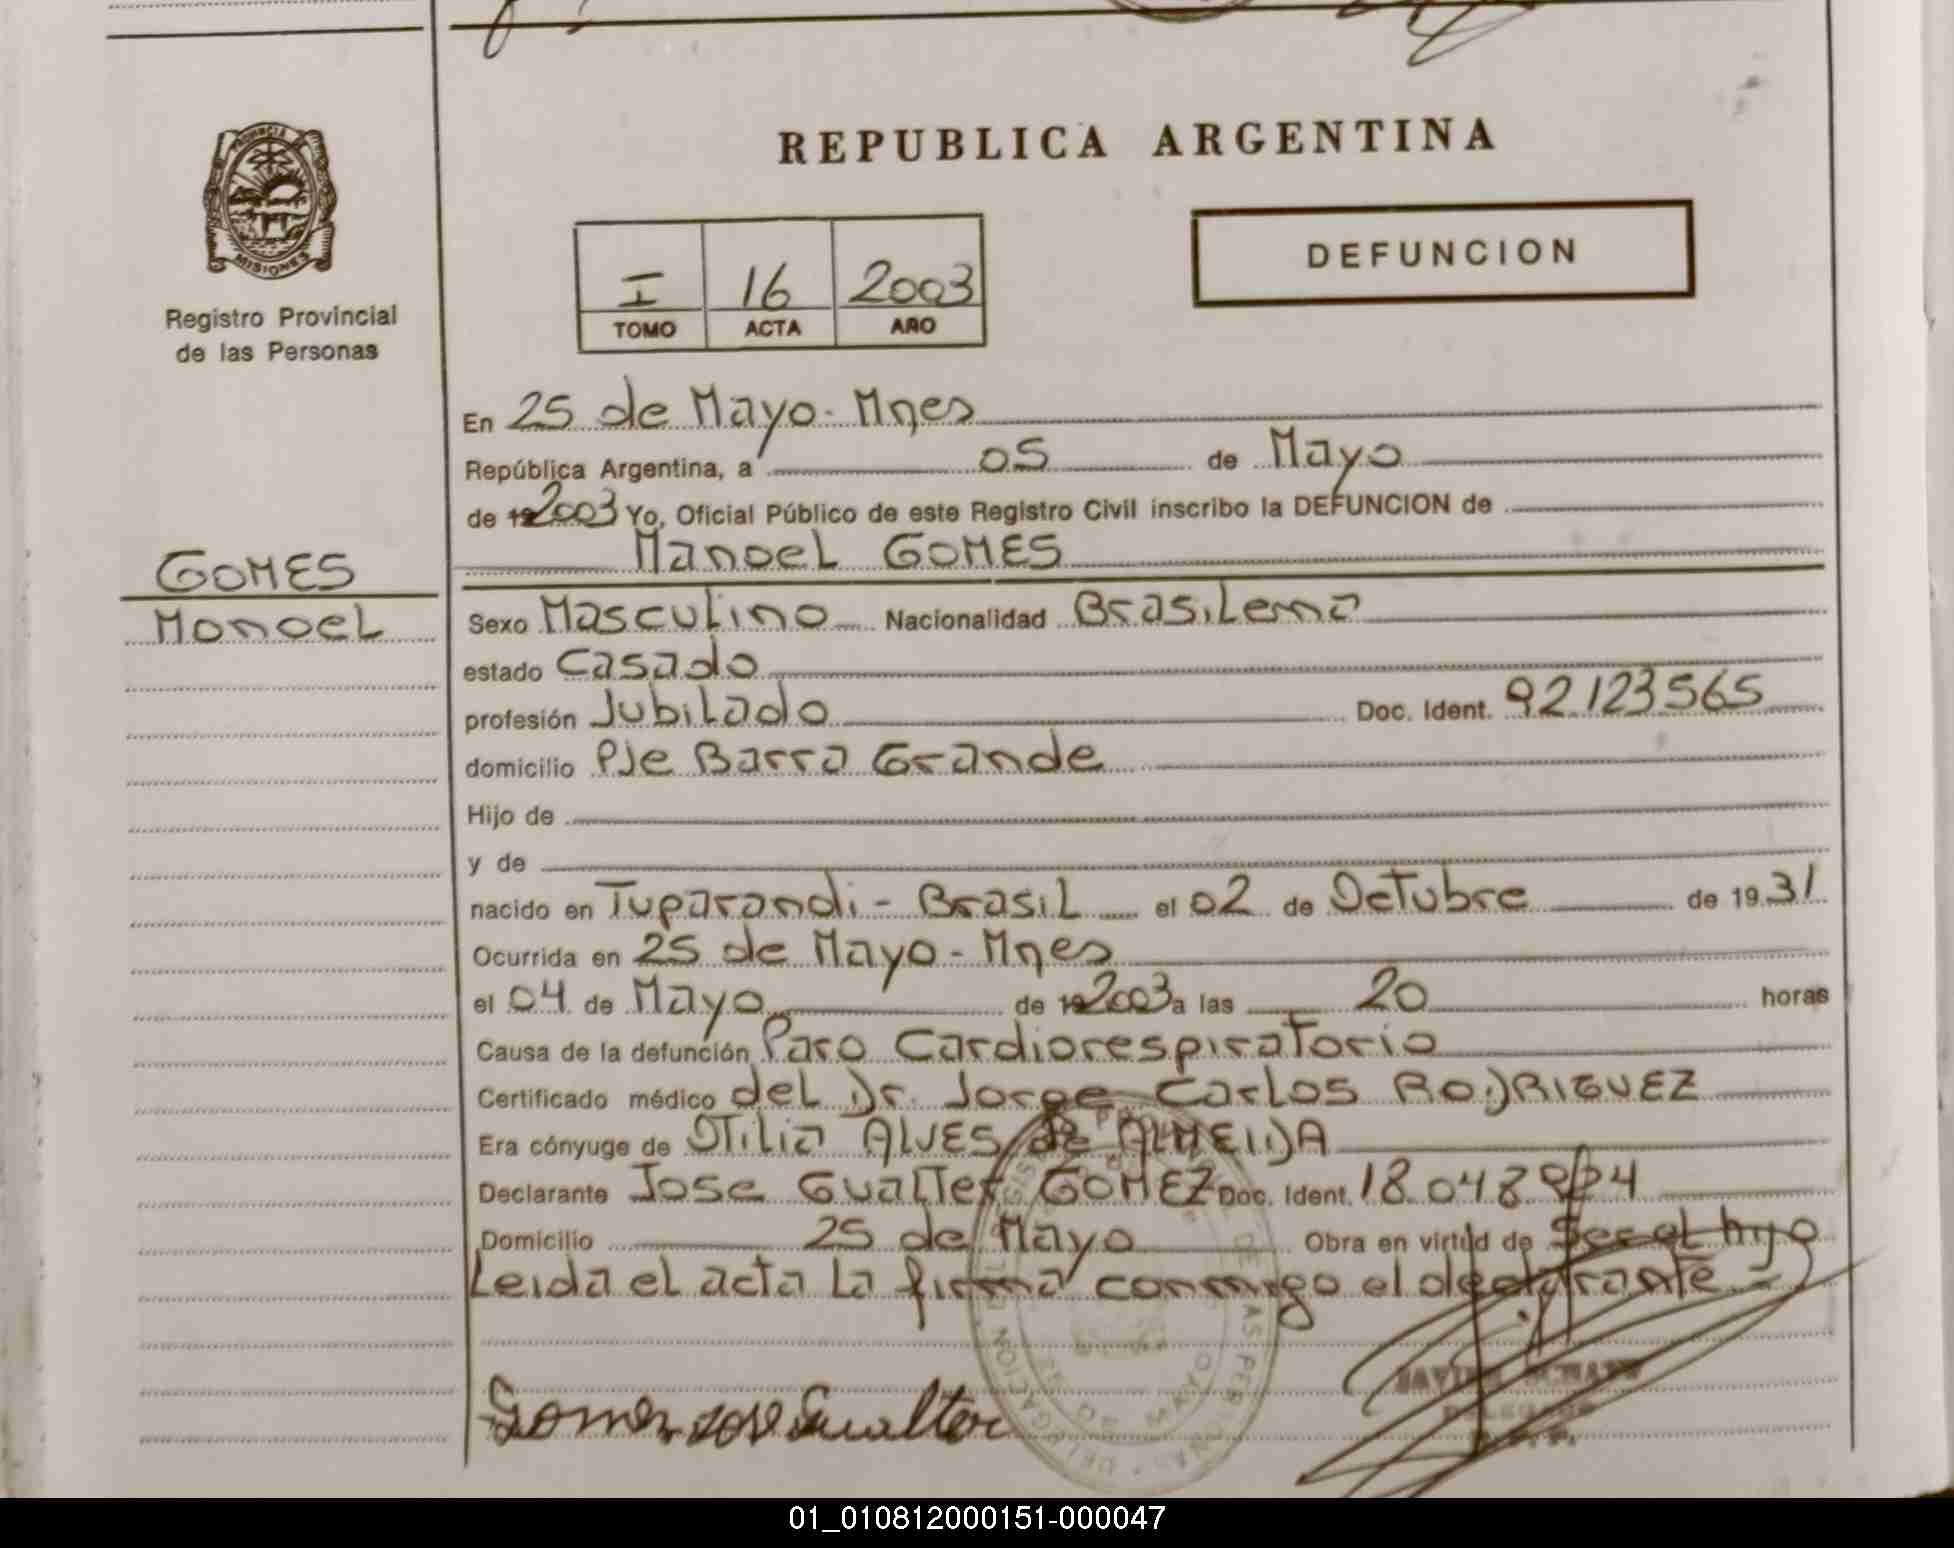 REPUBLICA ARGENTINA
PROVINCIA
MISIONES
Registro Provincial
de las Personas
I 16 2003
TOMO ACTA AÑO
DEFUNCION
En 25 de Mayo - Mnes
República Argentina, a 05 de Mayo
de 19 2003 Yo, Oficial Público de este Registro Civil inscribo la DEFUNCION de
Manoel GOMES
GOMES
Manoel
Sexo Masculino Nacionalidad Brasilema
estado Casado
profesión Jubilado Doc. Ident. 92.123.565
domicilio Pje Barra Grande
Hijo de
y de
nacido en Tuparandi - Brasil el 02 de Octubre de 19 31
Ocurrida en 25 de Mayo - Mnes
el 04 de Mayo de 19 2003 a las 20 horas
Causa de la defunción Paro Cardiorespiratorio
Certificado médico del Dr. Jorge Carlos RODRIGUEZ
Era cónyuge de Otilia ALVES de ALMEIDA
Declarante Jose Gualter GOMEZ Doc. Ident. 18.048
Domicilio 25 de Mayo Obra en virtud de Ser el hijo
Leida el acta La firma conmigo el declarante -
Gomez Jose Gualter
25 DE MAYO
01_010812000151-000047